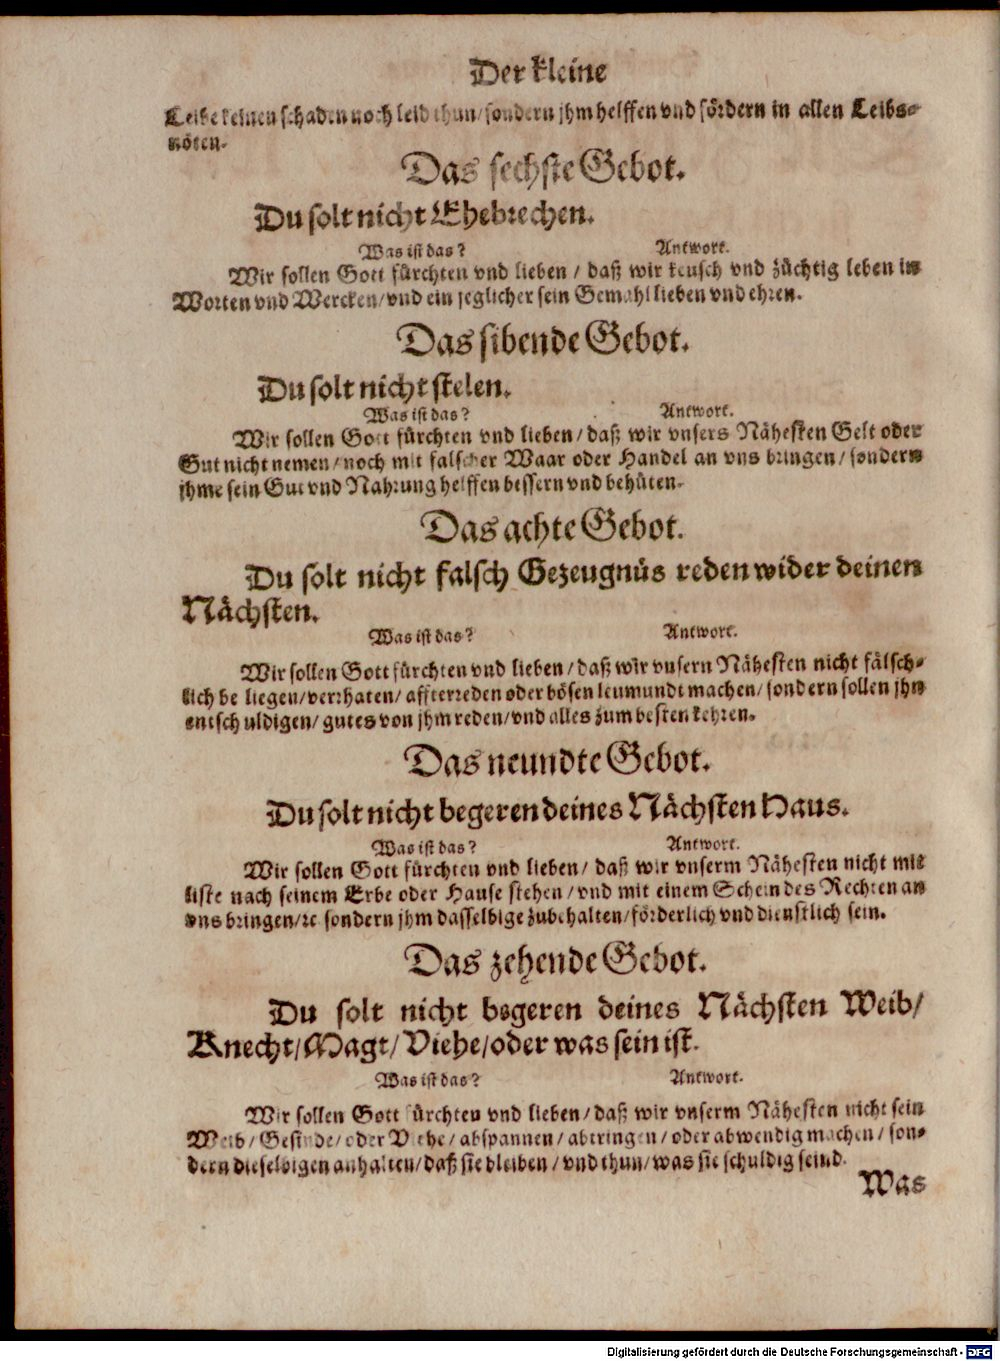 Der kleine
Leibe keinen schaden noch leid thun/ sondern jhm helffen vnd fördern in allen Leibs-
nöten.
Das sechste Gebot.
Du solt nicht Ehebrechen.
Was ist das? Antwort.
Wir sollen Gott fürchten vnd lieben / daß wir keusch vnd züchtig leben in
Worten vnd Wercken/ vnd ein jeglicher sein Gemahl lieben vnd ehren.
Das sibende Gebot.
Du solt nicht stelen.
Was ist das? Antwort.
Wir sollen Gott fürchten vnd lieben/ daß wir vnsers Nähesten Gelt oder
Gut nicht nemen/ noch mit falscher Waar oder Handel an vns bringen/ sondern
jhme sein Gut vnd Nahrung helffen bessern vnd behüten.
Das achte Gebot.
Du solt nicht falsch Gezeugnüs reden wider deinen
Nächsten.
Was ist das? Antwort.
Wir sollen Gott fürchten vnd lieben/ daß wir vnsern Nähesten nicht fälsch-
lich be liegen/ verrhaten/ affterreden oder bösen leumundt machen/ sondern sollen jhn
entschuldigen/ gutes von jhm reden/ vnd alles zum besten kehren.
Das neundte Gebot.
Du solt nicht begeren deines Nächsten Haus.
Was ist das? Antwort.
Wir sollen Gott fürchten vnd lieben/ daß wir vnserm Nähesten nicht mit
liste nach seinem Erbe oder Hause stehen/ vnd mit einem Schein des Rechten an
vns bringen/ ꝛc sondern jhm dasselbige zubehalten/ förderlich vnd dienstlich sein.
Das zehende Gebot.
Du solt nicht begeren deines Nächsten Weib/
Knecht/ Magt/ Viehe/ oder was sein ist.
Was ist das? Antwort.
Wir sollen Gott fürchten vnd lieben/ daß wir vnserm Nähesten nicht sein
Weib/ Gesinde/ oder Viehe/ abspannen/ abtringen/ oder abwendig machen/ son-
dern dieselbigen anhalten/ daß sie bleiben/ vnd thun/ was sie schuldig seind.
Was
Digitalisierung gefördert durch die Deutsche Forschungsgemeinschaft - DFG